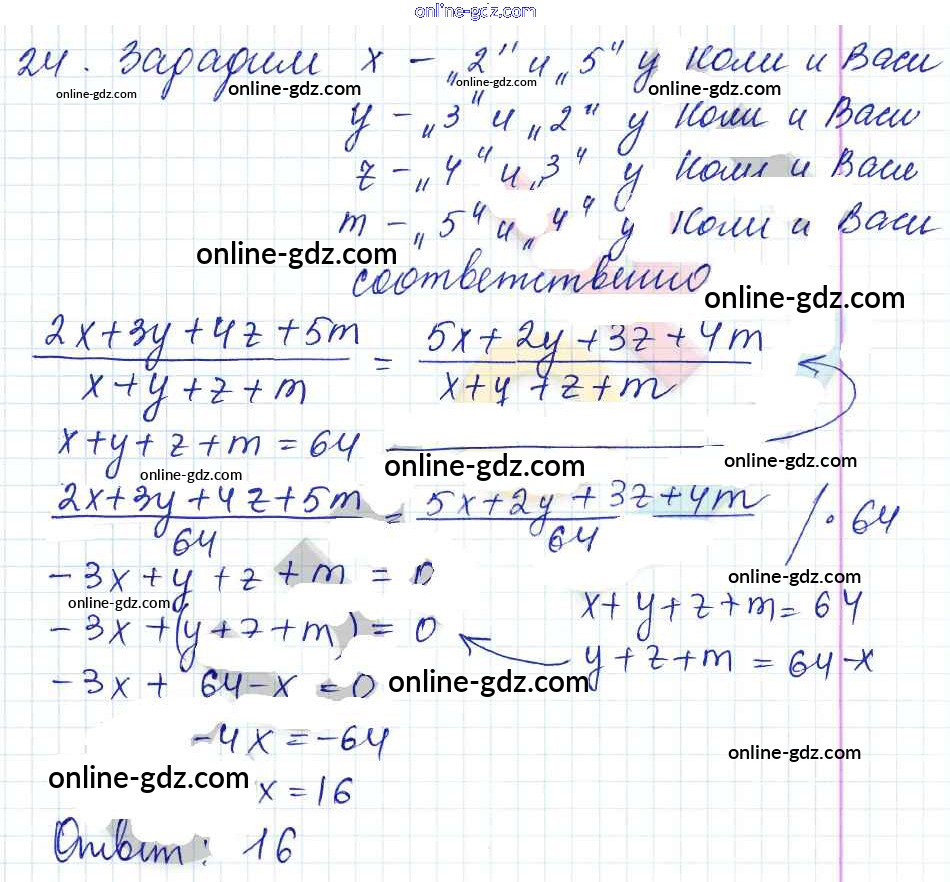 online-gdz.com
24. Зададим x – „2" и „5" у Коли и Васи
online-gdz.com online-gdz.com online-gdz.com online-gdz.com
y – „3" и „2" у Коли и Васи
z – „4" и „3" у Коли и Васи
m – „5" и „4" у Коли и Васи
online-gdz.com
соответственно
online-gdz.com
(2x+3y+4z+5m)/(x+y+z+m) = (5x+2y+3z+4m)/(x+y+z+m)
x+y+z+m=64
online-gdz.com online-gdz.com online-gdz.com
(2x+3y+4z+5m)/64 = (5x+2y+3z+4m)/64 /·64
-3x+y+z+m=0
online-gdz.com online-gdz.com
x+y+z+m=64
-3x+(y+z+m)=0
y+z+m=64-x
-3x+64-x=0
online-gdz.com
-4x=-64
online-gdz.com
online-gdz.com
x=16
Ответ: 16